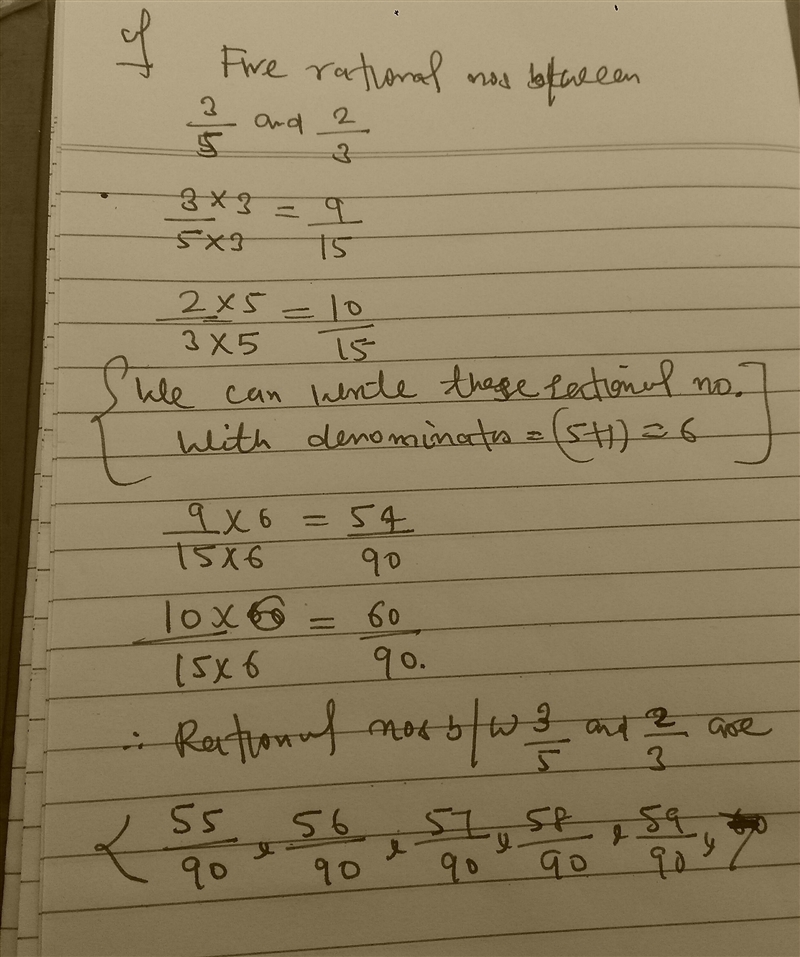 Five rational nos between
3/5 and 2/3
3 × 3 / 5 × 3 = 9/15
2 × 5 / 3 × 5 = 10/15
{ We can write these rational no.
With denominator = (5+1) = 6 ]
9 × 6 / 15 × 6 = 54/90
10 × 6 / 15 × 6 = 60/90.
∴ Rational nos b/w 3/5 and 2/3 are
55/90, 56/90, 57/90, 58/90, 59/90,